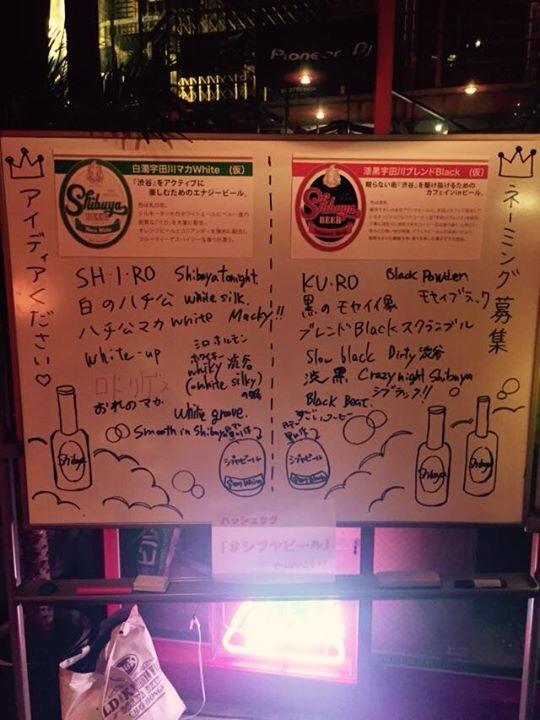 Pioneer Dj
アイディアください♡
白濁宇田川マカWhite (仮)
「渋谷」をアクティブに
楽しむためのエナジービール。
色は乳白色。
Shibuya
BEER
SH・I・RO Shibuya tonight.
白のハチ公 white silk.
ハチ公マカ white Macky!!
white-up
シロホルモン
ホワイキー
whiky 渋谷
(white silky)
ロドリゲス
おれのマカ.
white grove.
Smooth in Shibuya
シブヤビール
Shibuya
ネーミング募集
漆黒宇田川ブレンドBlack (仮)
眠らない街「渋谷」を駆け抜けるための
カフェインinビール。
色は漆黒。
Shibuya
BEER
KU・RO Black Powder
黒のモヤイ像 モヤイブラック
ブレンドBlackスクランブル
Slow black Dirty渋谷
渋黒 Crazy night Shibuya
シブラック!!
Black Beat.
すごいコーヒー
シブヤビール
Shibuya
Shibuya
ハッシュタグ
「#シブヤビール」